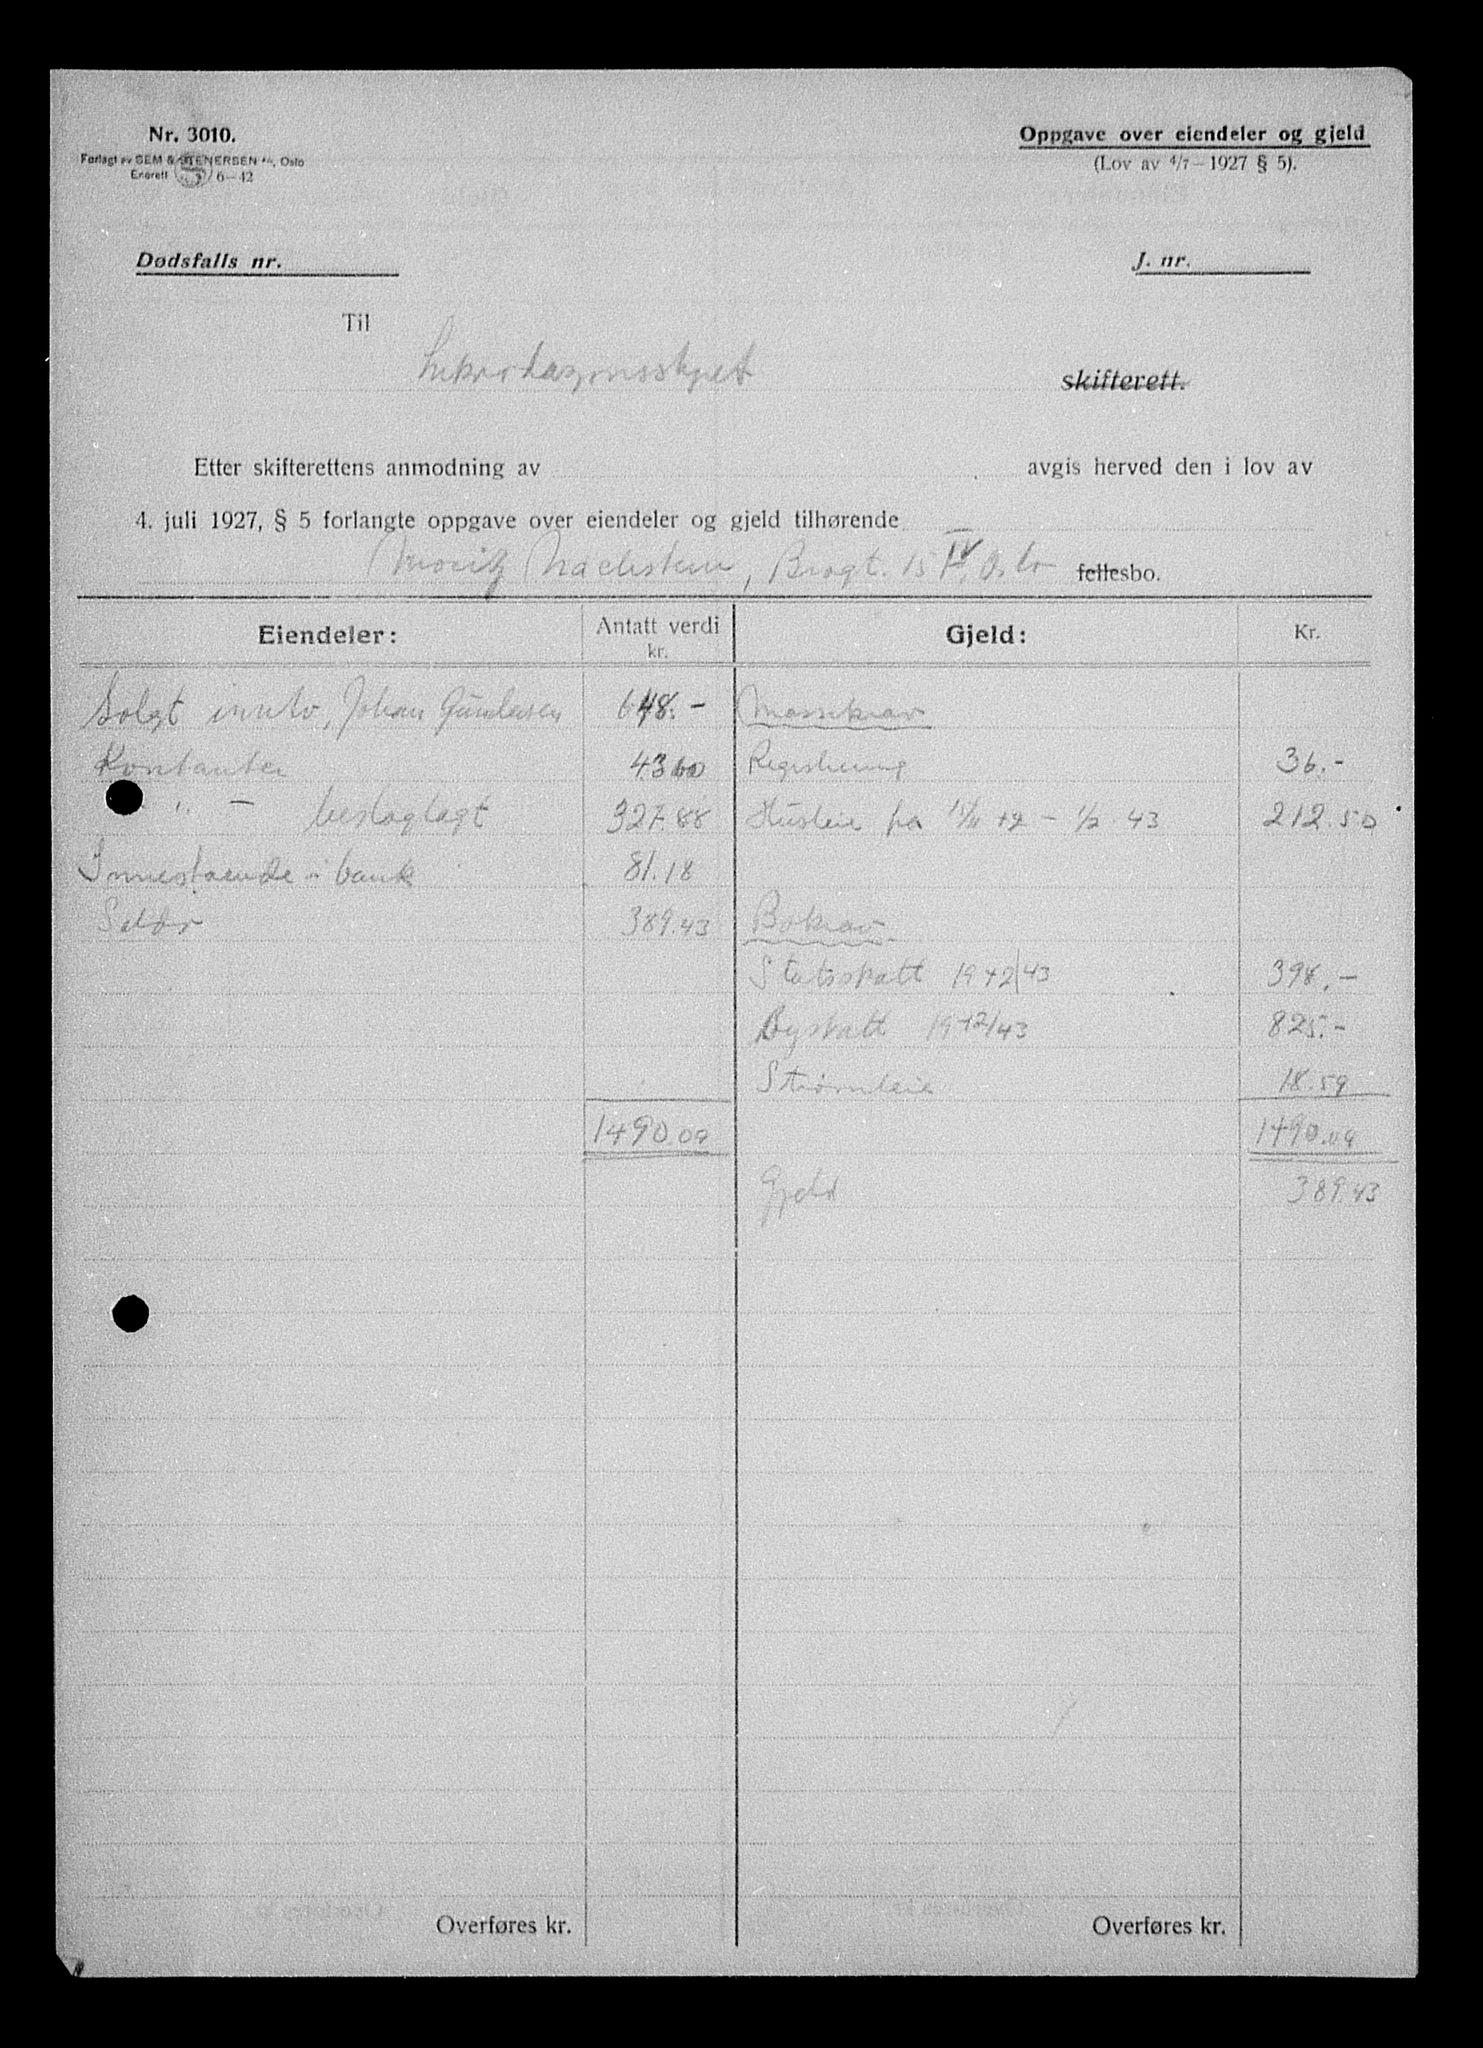 Nr. 3010.
Forlagt av SEM & STENERSEN A/S, Oslo
Enerett S 6—42
Oppgave over eiendeler og gjeld
(Lov av 4/7 — 1927 § 5).
Dødsfalls nr.
J. nr.
Til
skifterett.
Etter skifterettens anmodning av avgis herved den i lov av
4. juli 1927, § 5 forlangte oppgave over eiendeler og gjeld tilhørende
Moritz Nachstern, Brogt. 15 IV, Oslo fellesbo.
Eiendeler: Antatt verdi kr. Gjeld: Kr.
Solgt innbo, Johan Gundersen 648.- Massekrav
Kontanter 43.60 Registrering 36.-
" - beslaglagt 327.88 Husleie fra 15/11 42 - 1/2 43 212.50
Innestaende i bank 81.18
Saldo 389.43 Bokrav
Statsskatt 1942/43 398.-
Byskatt 1942/43 825.-
Strømleie 18.59
1490.09 1490.09
Gjeld 389.43
Overføres kr. Overføres kr.